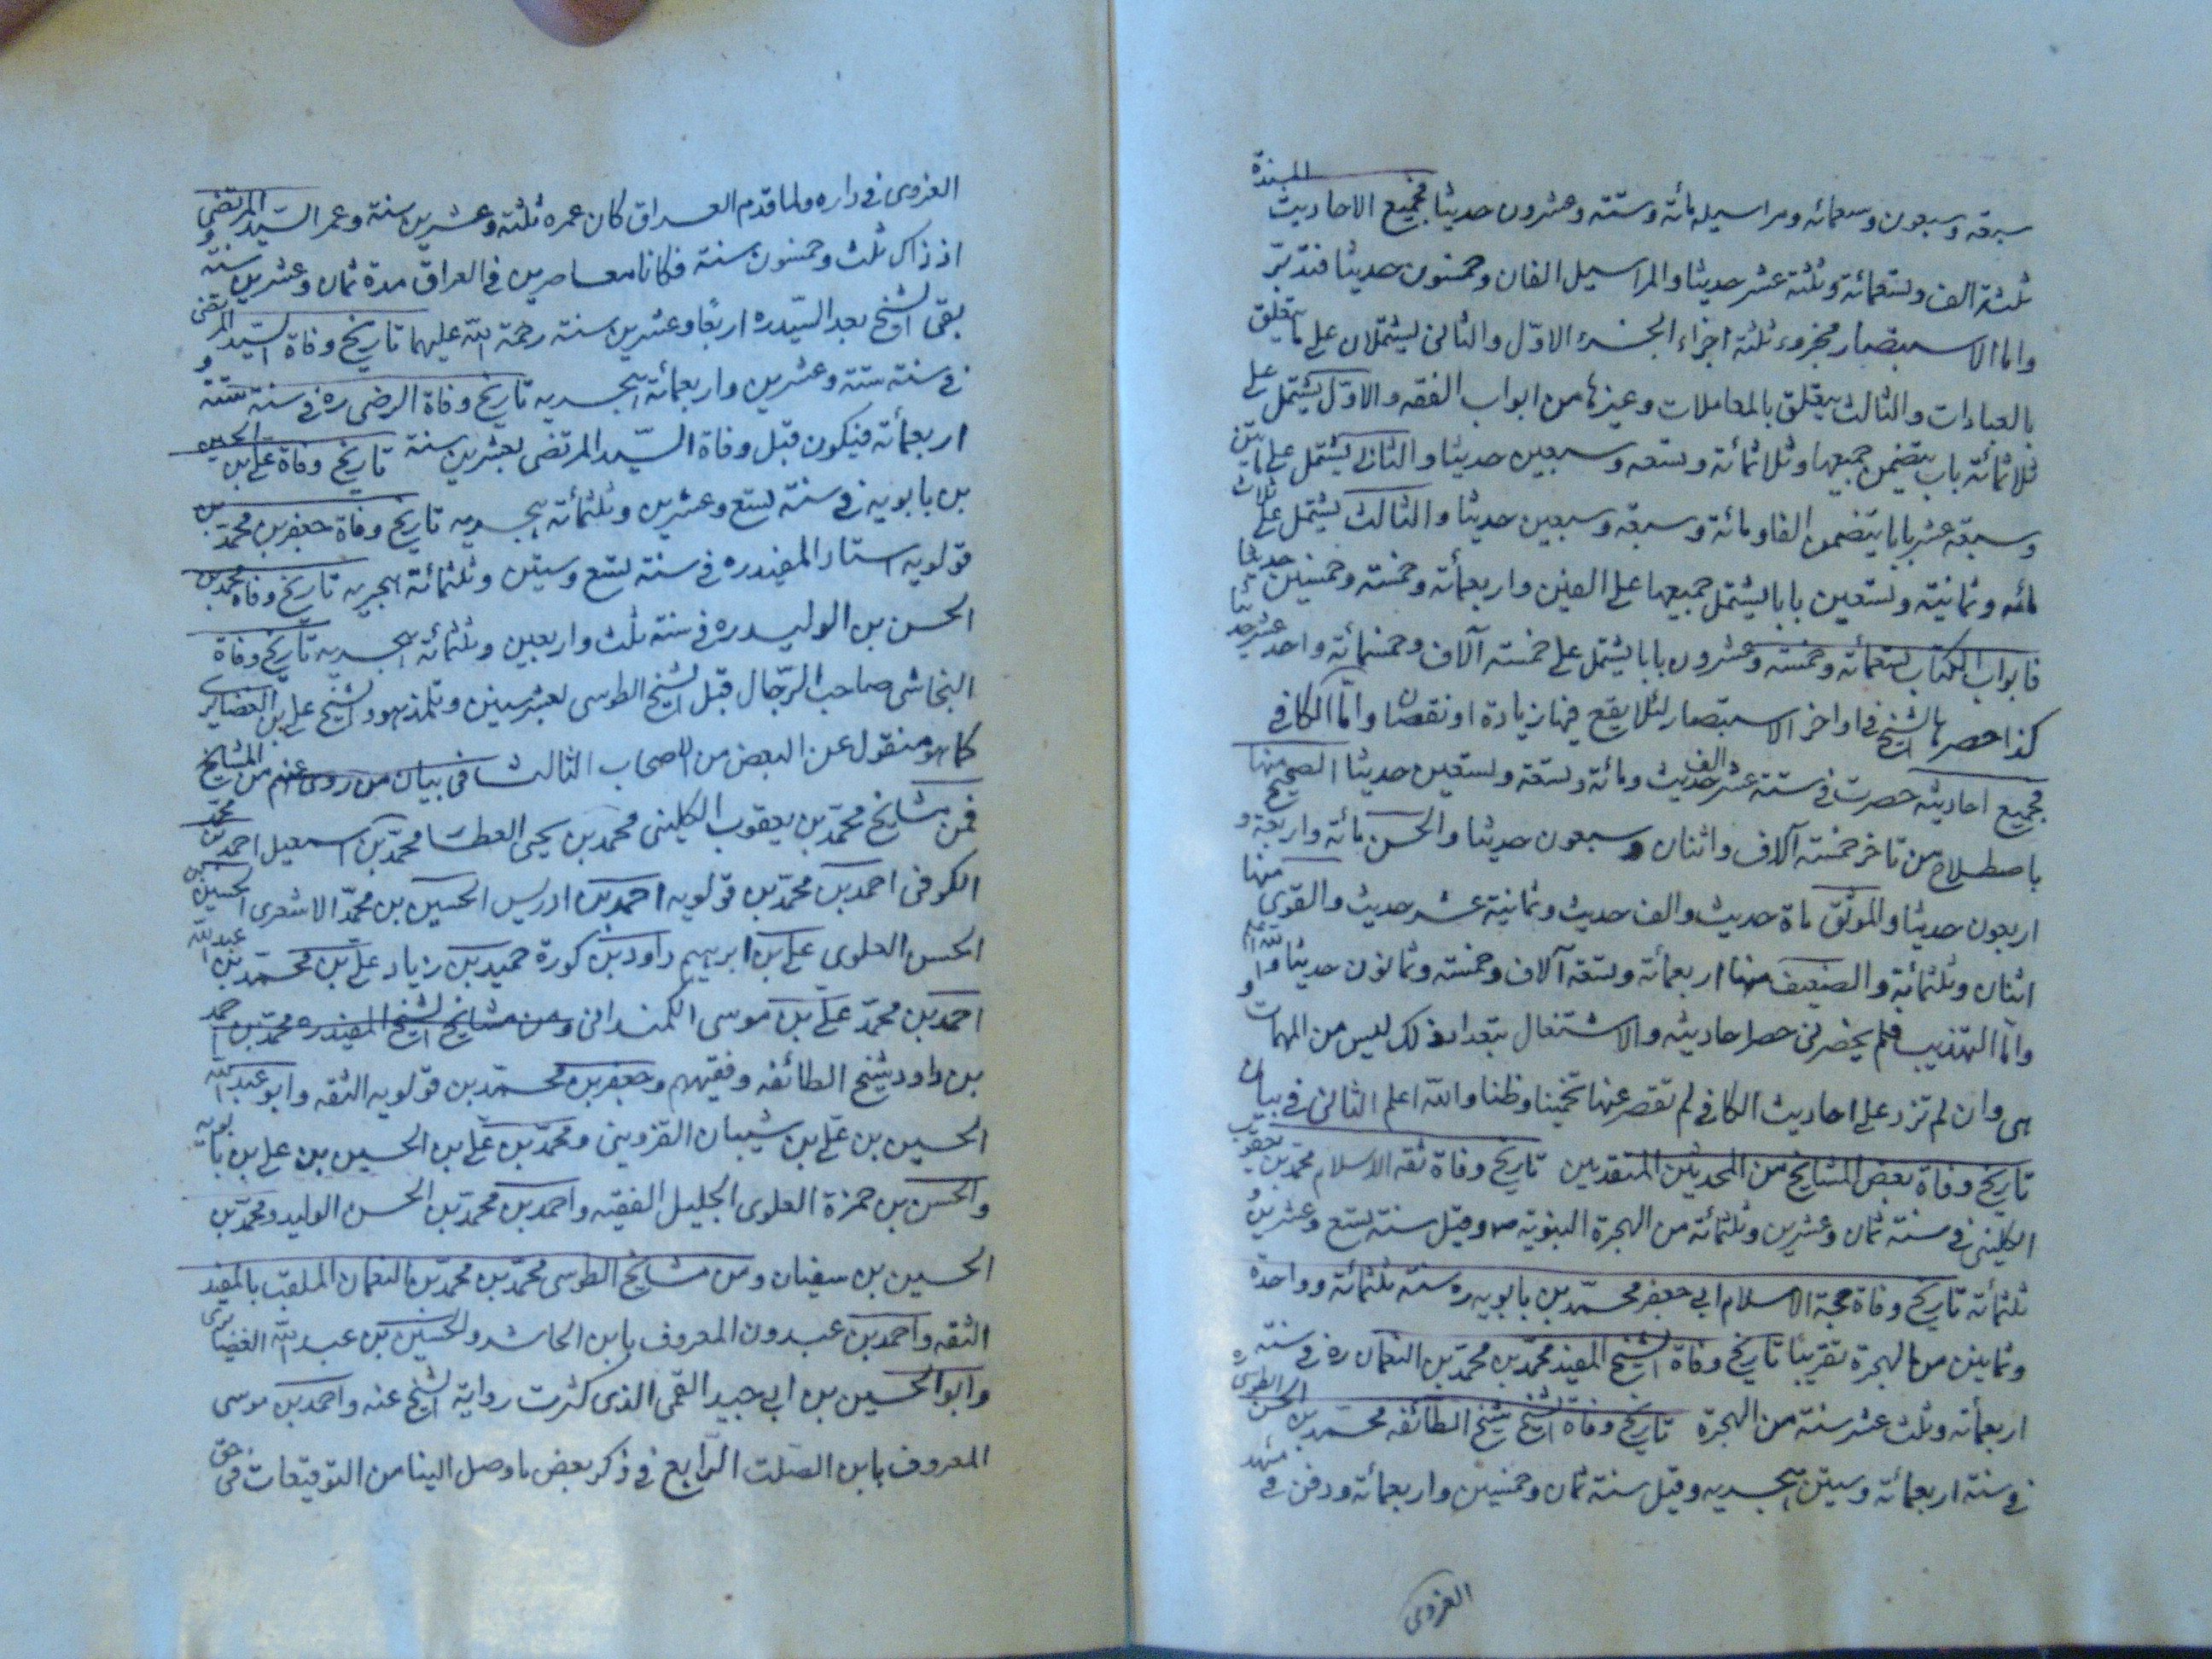 سبعة وسبعون وسبعمائه ومراسيله مائة وستة وعشرون حديثا فجميع الاحاديث المسندة
ثلثة الف وتسعمائة وثلثة عشر حديثا والمراسيل الفان وخمسون حديثا فتدبر
واما الاستبصار فجزوء ثلثه اجزاء الجزء الاول والثانى يشتملان على ما يتعلق
بالعبادات والثالث يتعلق بالمعاملات وغيرها من ابواب الفقه والاول يشتمل على
ثلاثمائة باب يتضمن جميعها وثلاثمائة وتسعه وسبعين حديثا والثانى يشتمل على مأتين
وسبعة عشر بابا يتضمن الفا ومائة وسبعه وسبعين حديثا والثالث يشتمل على ثلاث
مائه وثمانية وتسعين بابا يشتمل جميعها على الفين واربعمأئة وخمسة وخمسين حديثا
فابواب الكتاب تسعمأئه وخمسة وعشرون بابا يشتمل على خمسه آلاف وخمسمائة واحد عشر حديثا
كذا حصرها الشيخ فى اواخر الاستبصار لئلا يقع فيها زيادة او نقصان واما الكافى
فجميع احاديثه حصرت فى ستة عشر الف حديث ومائة وتسعة وتسعين حديثا الصحيح منها
باصطلاح من تاخر خمسة آلاف واثنان وسبعون حديثا والحسن مائة واربعة و
اربعون حديثا والموثق ماة حديث والف حديث وثمانية عشر حديث والقوى منها
اثنان وثلثمائة والضعيف منها اربعمائة وتسعة آلاف وخمسة وثمانون حديثا والله اعلم
واما التهذيب فلم يحضرنى حصر احاديثه والاشتغال بتعداد ذلك ليس من المهمات و
هى وان لم تزد على احاديث الكافى لم تقصر عنها تخمينا وظنا والله اعلم الثانى فى بيان
تاريخ وفاة بعض المشايخ من المحدثين المتقدمين تاريخ وفاة ثقه الاسلام محمد بن يعقوب
الكلينى فى سنة ثمان وعشرين وثلثمائة من الهجرة النبوية ص وقيل سنة تسع وعشرين و
ثلثمائة تاريخ وفاة حجة الاسلام ابى جعفر محمد بن بابويه ره سنة ثلثمائة وواحدة
وثمانين من الهجرة تقريبا تاريخ وفاة الشيخ المفيد محمد بن محمد بن النعمان ره فى سنة
اربعمأئه وثلث عشر سنة من الهجرة تاريخ وفاة الشيخ شيخ الطائفه محمد بن الحسن الطوسى ره
فى سنة اربعمائه وستين هجريه وقيل سنة ثمان وخمسين واربعمائة ودفن فى مشهد
الغروى
الغروى فى داره ولما قدم العراق كان عمره ثلثة وعشرين سنة وعمر السيد المرتضى
اذ ذاك ثلث وخمسون سنة فكانا معاصرين فى العراق مدة ثمان وعشرين سنة و
بقى الشيخ بعد السيد ره اربعا وعشرين سنة رحمة الله عليهما تاريخ وفاة السيد المرتضى
فى سنة ستة وعشرين واربعمائة هجريه تاريخ وفاة الرضى ره فى سنة ستة و
اربعمائه فيكون قبل وفاة السيد المرتضى بعشرين سنة تاريخ وفاة على بن الحسين
بن بابويه فى سنة تسع وعشرين وثلثمائة هجريه تاريخ وفاة جعفر بن محمد بن
قولويه استاد المفيد ره فى سنة تسع وستين وثلثمائة الهجريه تاريخ وفاة محمد بن
الحسن بن الوليد ره فى سنة ثلث واربعين وثلثمائة هجريه تاريخ وفاة
النجاشى صاحب الرجال قبل الشيخ الطوسى بعشر سنين وتلمذ هو والشيخ على بن الغضايرى
كما هو منقول عن البعض من الاصحاب الثالث فى بيان من روى عنهم من المشايخ
فمن مشايخ محمد بن يعقوب الكلينى محمد بن يحيى العطار محمد بن اسمعيل احمد بن محمد
الكوفى احمد بن محمد بن قولويه احمد بن ادريس الحسين بن محمد الاشعرى الحسين بن
الحسن العلوى على بن ابرهيم داود بن كورة حميد بن زياد على بن محمد بن عبد الله
احمد بن محمد على بن موسى الكمندانى ومن مشايخ الشيخ المفيد ره محمد بن احمد
بن داود شيخ الطائفه وفقيههم وجعفر بن محمد بن قولويه الثقه وابو عبد الله
الحسين بن على بن شيبان القزوينى ومحمد بن على بن الحسين بن على بن بابويه
والحسن بن حمزة العلوى الجليل الفقيه واحمد بن محمد بن الحسن الوليد ومحمد بن
الحسين بن سفيان ومن مشايخ الطوسى محمد بن محمد بن النعمان الملقب بالمفيد
الثقه واحمد بن عبدون المعروف بابن الحاشر والحسين بن عبد الله الغضايرى
وابو الحسين بن ابى جيد القمى الذى كثرت رواية الشيخ عنه واحمد بن موسى
المعروف بابن الصلت الرابع فى ذكر بعض ما وصل الينا من التوقيعات فى حق